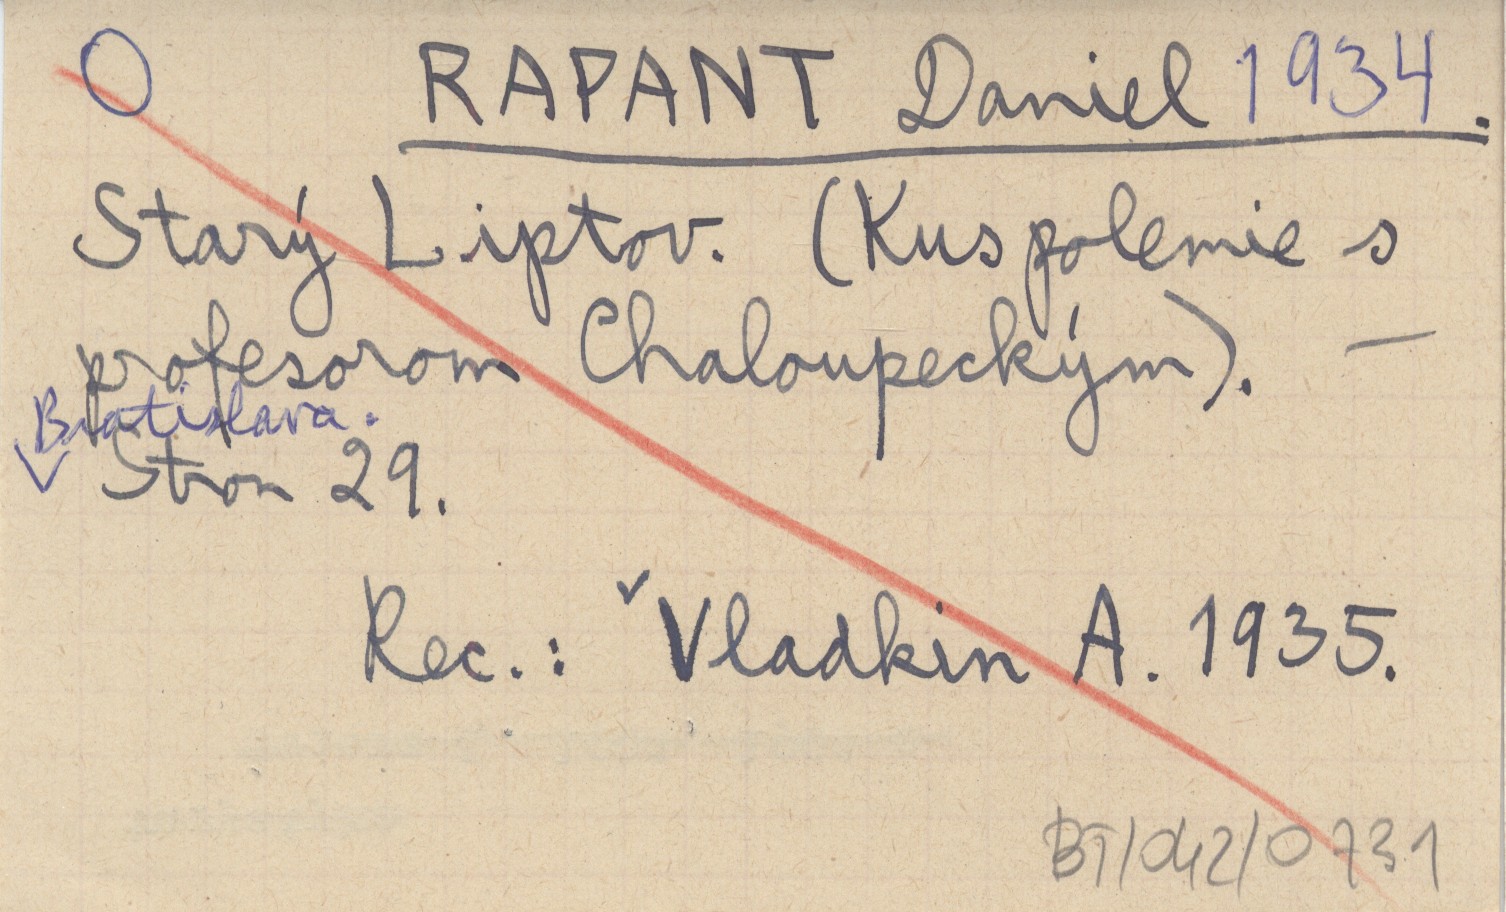 O RAPANT Daniel 1934.
Starý Liptov. (Kus polemie s
profesorom Chaloupeckým). —
Bratislava.
Stron 29.
Rec.: Vladkin A. 1935.
BT/042/0731